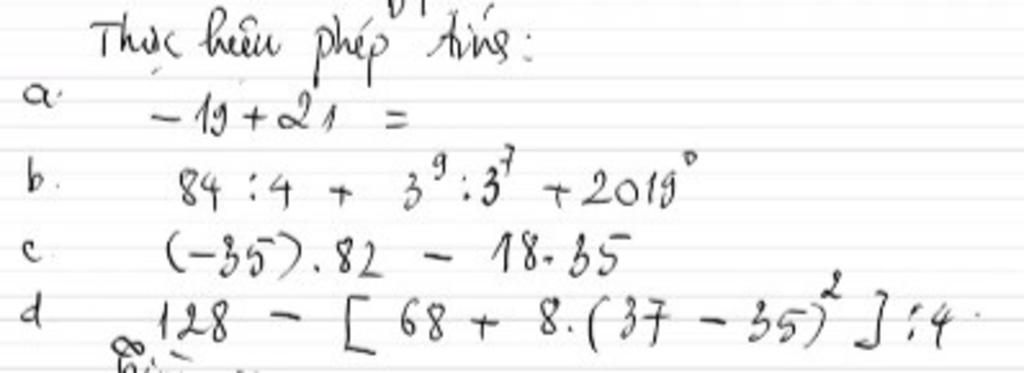 Thực hiện phép tính:
a. -19 + 21 =
b. 84 : 4 + 3⁹ : 3⁷ + 2019⁰
c (-35) . 82 - 18 . 35
d 128 - [ 68 + 8.(37 - 35)² ] : 4